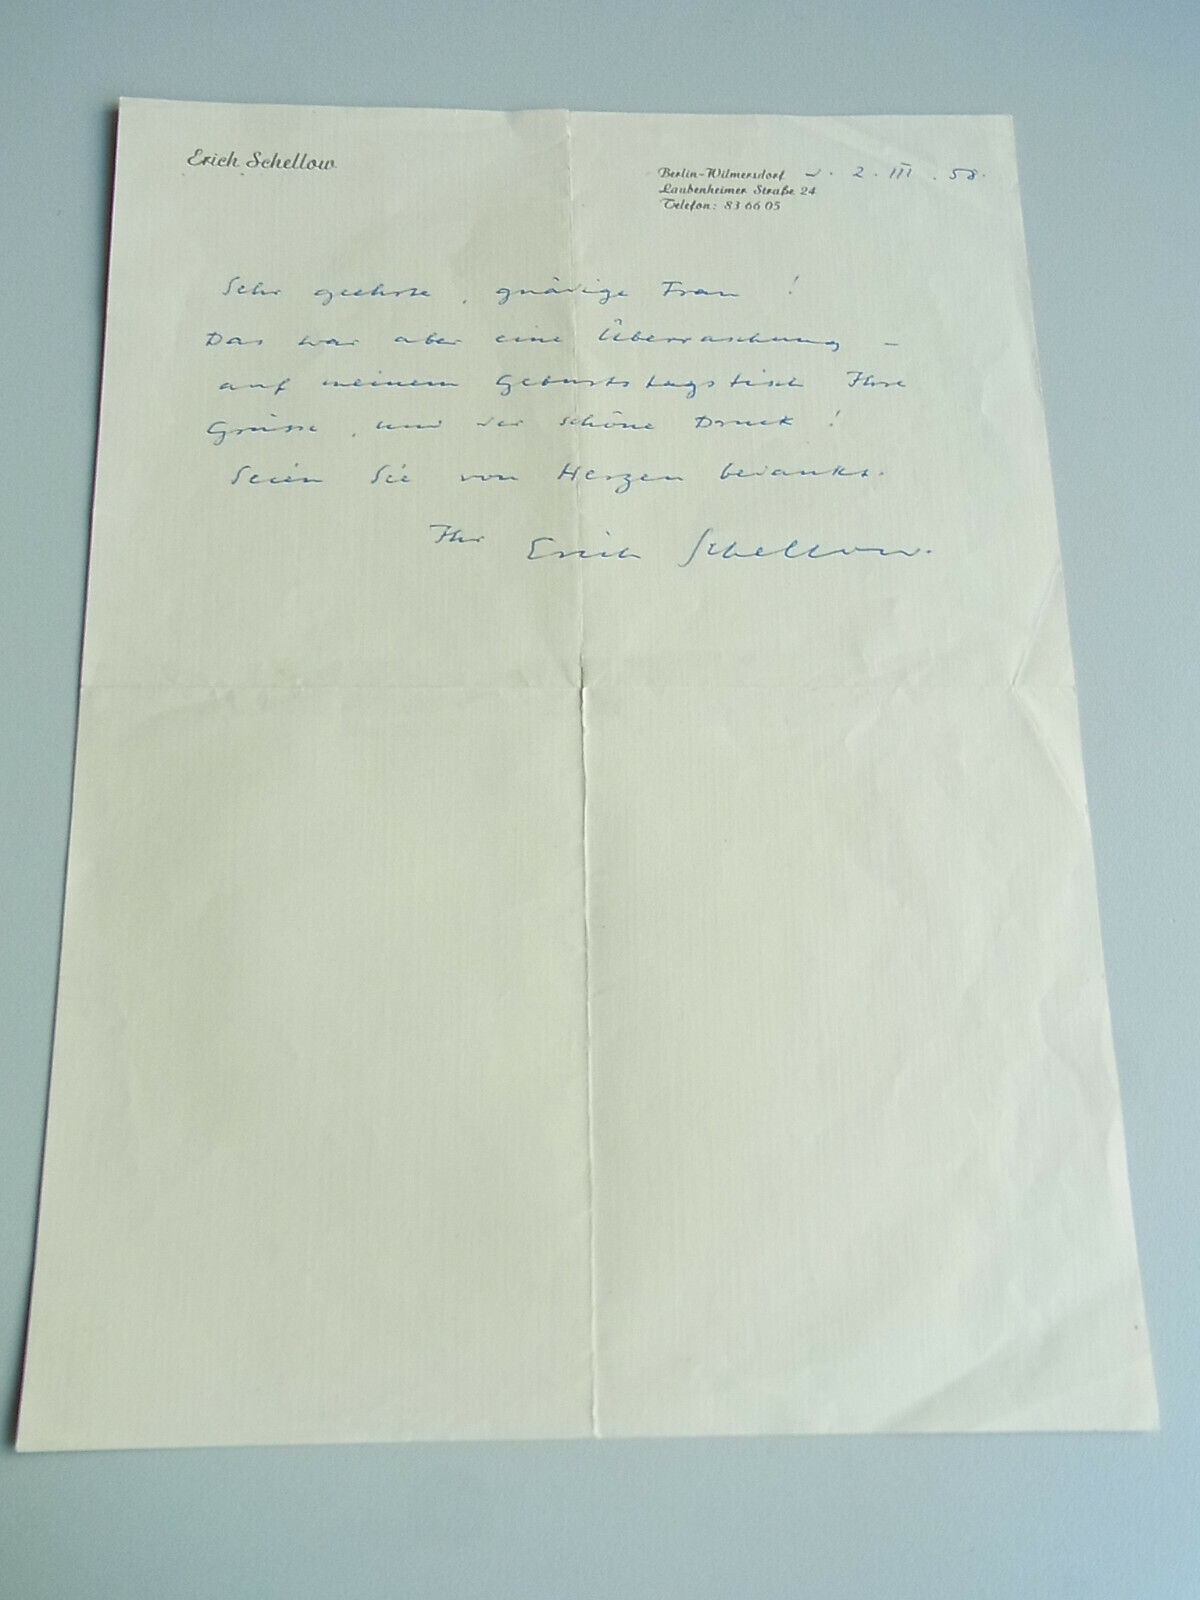 Erich Schellow
Berlin-Wilmersdorf d. 2. III. 58.
Laubenheimer Straße 24
Telefon: 83 66 05
Sehr geehrte, gnädige Frau!
Das war aber eine Überraschung –
auf meinem Geburtstagstisch Ihre
Grüsse, und der schöne Druck!
Seien Sie von Herzen bedankt.
Ihr Erich Schellow.